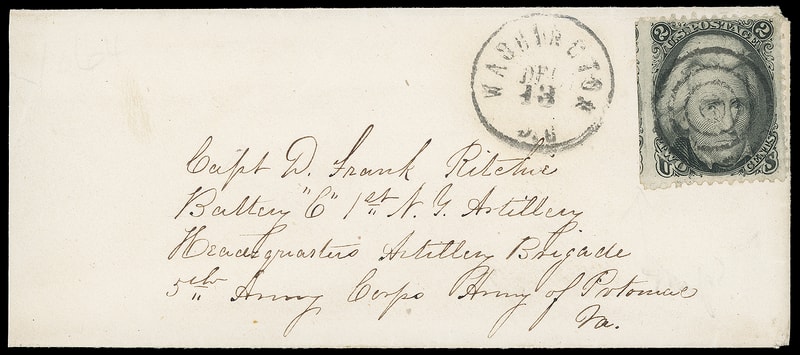 WASHINGTON
DEC
13
U.S. POSTAGE
2 2
TWO CENTS
U S
Capt D. Frank Ritchie
Battery "C" 1st N.Y. Artillery
Headquarters Artillery Brigade
5th Army Corps Army of Potomac
Va.